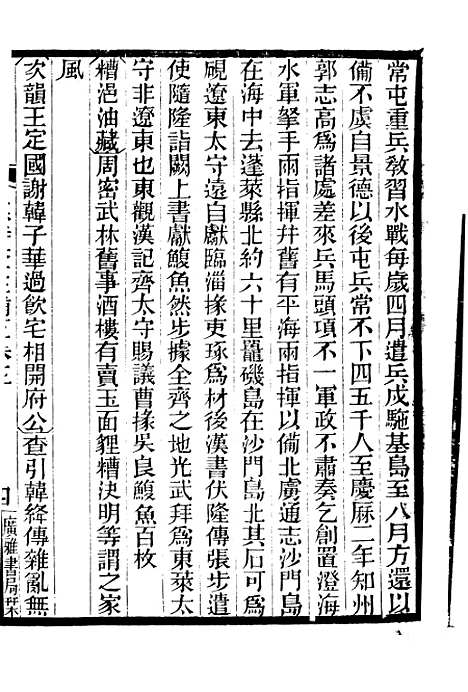 常屯重兵敎習水戰每歲四月遣兵戍駞基島至八月方還以
備不虞自景德以後屯兵常不下四五千人至慶厤二年知州
郭志高爲諸處差來兵馬頭項不一軍政不肅奏乞創置澄海
水軍弩手兩指揮幷舊有平海兩指揮以備北虜通志沙門島
在海中去蓬萊縣北約六十里鼉磯島在沙門島北其石可爲
硯遼東太守遠自獻臨淄掾吏琢爲材後漢書伏隆傳張步遣
使隨隆詣闕上書獻鰒魚然步據全齊之地光武拜爲東萊太
守非遼東也東觀漢記齊太守賜議曹掾吳良鰒魚百枚
糟浥油藏周密武林舊事酒樓有賣玉面貍糟決明等謂之家
風
次韻王定國謝韓子華過飮宅相開府公查引韓絳傳雜亂無
四
廣雅書局栞